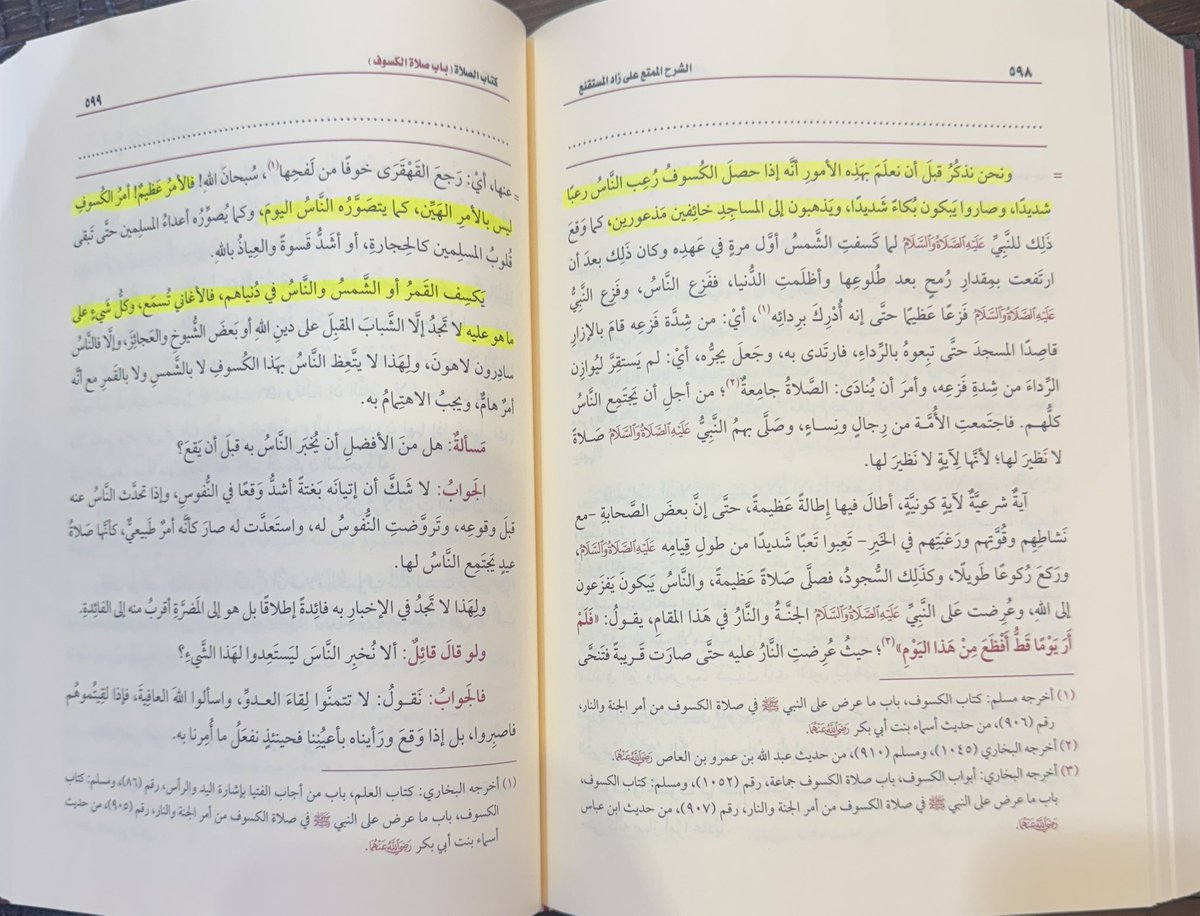 ٥٩٨
الشرح الممتع على زاد المستقنع
= ونحن نذكُرُ قبلَ أن نعلَمَ بهَذِه الأمورِ أنَّه إذا حصلَ الكُسوفُ رُعِب النَّاسُ رعبًا
شديدًا، وصاروا يَبكون بُكاءً شديدًا، ويَذهبون إلى المساجِدِ خائِفين مَذعورين، كما وَقَعَ
ذَلِك للنَّبيِّ عَلَيْهِ الصَّلَاةُ وَالسَّلَامُ لما كَسفتِ الشَّمسُ أوَّل مرةٍ في عَهدِه وكان ذَلِك بعدَ أن
ارتَفعت بمِقدارِ رُمحٍ بعد طُلوعِها وأظلَمتِ الدُّنيا، ففَزِع النَّاسُ، وفَزِع النَّبيُّ
عَلَيْهِ الصَّلَاةُ وَالسَّلَامُ فزَعًا عَظيمًا حتَّى إنه أُدْرِكَ بردائِه(١)، أيْ: من شِدَّة فزَعِه قامَ بالإزارِ
قاصِدًا المسجدَ حتَّى تبِعوهُ بالرِّداءِ، فارتَدى به، وجَعلَ يجرُّه، أيْ: لم يَستقِرَّ ليُوازِن
الرِّداءَ من شدةِ فزَعِه، وأمرَ أن يُنادَى: الصَّلاةُ جامعةٌ(٢)؛ من أجلِ أن يَجتَمِع النَّاسُ
كلُّهم. فاجتَمعتِ الأُمَّة من رِجالٍ ونِساءٍ، وصَلَّى بهمُ النَّبيُّ عَلَيْهِ الصَّلَاةُ وَالسَّلَامُ صَلاةً
لا نَظيرَ لها؛ لأنَّها لآيةٍ لا نَظيرَ لها.
آيةٌ شرعيَّةٌ لآيةٍ كونيَّةٍ، أطالَ فيها إطالَةً عَظيمةً، حتَّى إنَّ بعضَ الصَّحابةِ -مع
نَشاطِهِم وقُوَّتِهم ورَغبَتِهم في الخَيرِ- تَعِبوا تَعبًا شَديدًا من طولِ قِيامِه عَلَيْهِ الصَّلَاةُ وَالسَّلَامُ،
ورَكعَ رُكوعًا طَويلًا، وكذَلِك السُّجودُ، فصلَّى صَلاةً عَظيمةً، والنَّاسُ يَبكونَ يَفزَعون
إلى اللهِ، وعُرِضت عَلى النَّبيِّ عَلَيْهِ الصَّلَاةُ وَالسَّلَامُ الجنَّةُ والنَّارُ في هَذا المقامِ، يقولُ: «فَلَمْ
أَرَ يَوْمًا قَطُّ أَفْظَعَ مِنْ هَذَا اليَوْمِ»(٣)؛ حيثُ عُرِضتِ النَّارُ عليه حتَّى صارَت قَريبةً فتَنحَّى
(١) أخرجه مسلم: كتاب الكسوف، باب ما عرض على النبي ﷺ في صلاة الكسوف من أمر الجنة والنار،
رقم (٩٠٦)، من حديث أسماء بنت أبي بكر رَضِيَ اللَّهُ عَنْهُمَا.
(٢) أخرجه البخاري (١٠٤٥)، ومسلم (٩١٠)، من حديث عبد الله بن عمرو بن العاص رَضِيَ اللَّهُ عَنْهُمَا.
(٣) أخرجه البخاري: أبواب الكسوف، باب صلاة الكسوف جماعة، رقم (١٠٥٢)، ومسلم: كتاب الكسوف،
باب ما عرض على النبي ﷺ في صلاة الكسوف من أمر الجنة والنار، رقم (٩٠٧)، من حديث ابن عباس
رَضِيَ اللَّهُ عَنْهُمَا.
كتاب الصلاة (باب صلاة الكسوف)
٥٩٩
= عنها، أيْ: رَجعَ القَهْقَرَى خوفًا من لَفحِها(١)، سُبحانَ اللهِ! فالأمرُ عَظيمٌ! أمرُ الكُسوفِ
ليس بالأمرِ الهيِّن، كما يتصَوَّرُه النَّاسُ اليومَ، وكما يُصوِّرُه أعداءُ المسلِمين حتَّى تَبقى
قُلوبُ المسلِمين كالحِجارةِ، أو أشدُّ قَسوةً والعِياذُ باللهِ.
يَكسِف القَمرُ أو الشَّمسُ والنَّاسُ في دُنياهم، فالأغاني تُسمَع، وكلُّ شَيءٍ على
ما هو عليه لا تَجدُ إلَّا الشَّبابَ المقبلَ على دِينِ اللهِ أو بَعضَ الشُّيوخِ والعَجائِزَ، وإلَّا فالنَّاسُ
سادِرون لاهونَ، ولِهَذا لا يتَّعِظ النَّاسُ بهَذا الكُسوفِ لا بالشَّمسِ ولا بالقَمرِ مع أنَّه
أمرٌ هامٌّ، ويجبُ الاهتِمامُ به.
مَسألةٌ: هل منَ الأفضلِ أن يُخبَر النَّاسُ به قبلَ أن يَقعَ؟
الجَوابُ: لا شَكَّ أن إتيانَه بَغتةً أشدُّ وَقعًا في النُّفوسِ، وإذا تحدَّث النَّاسُ عنه
قبلَ وقوعِه، وتَروَّضتِ النُّفوسُ له، واستَعدَّت له صارَ كأنَّه أمرٌ طَبيعيٌّ، كأنَّها صَلاةُ
عيدٍ يَجتَمِع النَّاسُ لها.
ولِهَذا لا تَجدُ في الإخبارِ به فائِدةً إطلاقًا بل هو إلى المَضرَّةِ أقربُ منه إلى الفائِدةِ.
ولو قالَ قائِلٌ: ألا نُخبِر النَّاسَ ليَستَعِدوا لهَذا الشَّيءِ؟
فالجَوابُ: نَقولُ: لا تتمنَّوا لِقاءَ العدوِّ، واسألوا اللهَ العافِيةَ، فإذا لقِيتُموهُم
فاصبِروا، بل إذا وَقعَ ورَأيناه بأعيُنِنا فحينَئذٍ نفعَلُ ما أُمِرنا به.
(١) أخرجه البخاري: كتاب العلم، باب من أجاب الفتيا بإشارة اليد والرأس، رقم (٨٦)، ومسلم: كتاب
الكسوف، باب ما عرض على النبي ﷺ في صلاة الكسوف من أمر الجنة والنار، رقم (٩٠٥)، من حديث
أسماء بنت أبي بكر رَضِيَ اللَّهُ عَنْهُمَا.